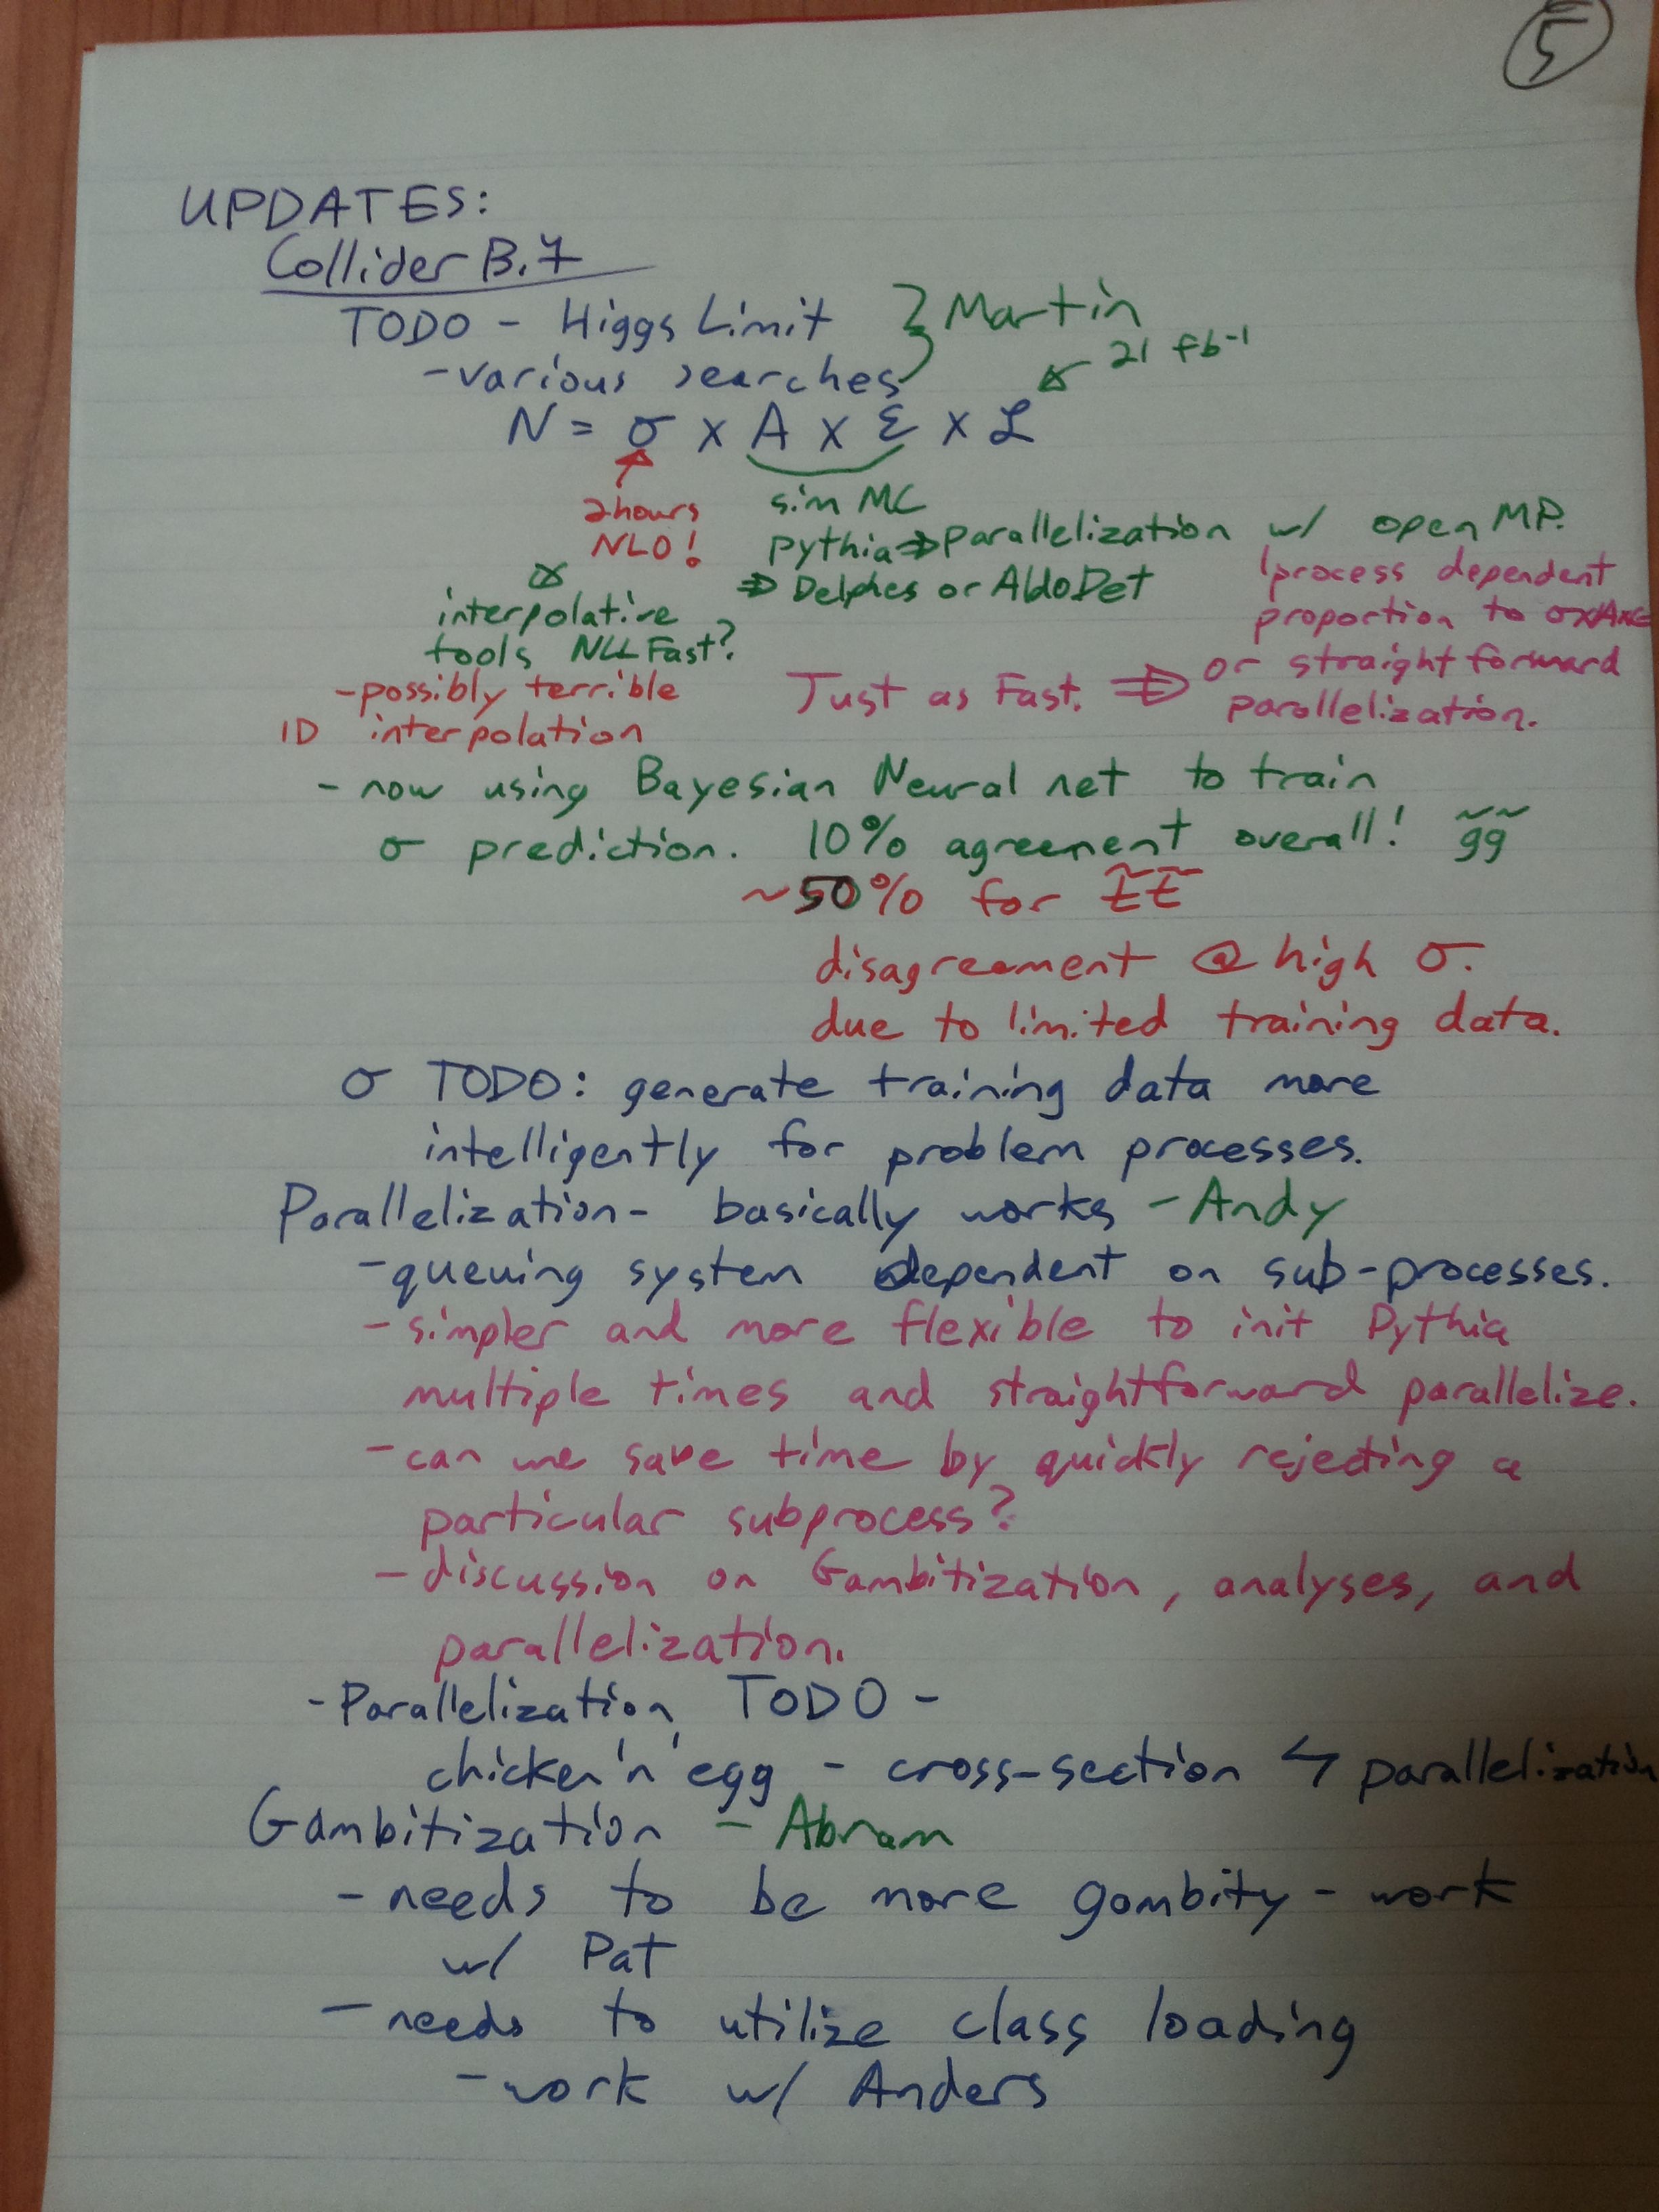 5
UPDATES:
Collider B.7
TODO - Higgs Limit } Martin
- various searches
21 fb⁻¹
N = σ x A x ε x ℒ
2 hours
NLO!
sim MC
Pythia ⇒ Parallelization w/ open MP.
⇒ Delphes or AldoDet
process dependent
proportion to σxAxε
or straight forward
parallelization.
Just as Fast. ⇒
interpolative
tools NLLFast?
- possibly terrible
1D interpolation
- now using Bayesian Neural net to train
σ prediction. 10% agreement overall! g̃g̃
~50% for t̃t̃
disagreement @ high σ.
due to limited training data.
σ TODO: generate training data more
intelligently for problem processes.
Parallelization - basically works - Andy
- queuing system dependent on sub-processes.
- simpler and more flexible to init Pythia
multiple times and straightforward parallelize.
- can we save time by quickly rejecting a
particular subprocess?
- discussion on Gambitization, analyses, and
parallelization.
- Parallelization TODO -
chicken 'n' egg - cross-section ↳ parallelization
Gambitization - Abram
- needs to be more gambity - work
w/ Pat
- needs to utilize class loading
- work w/ Anders